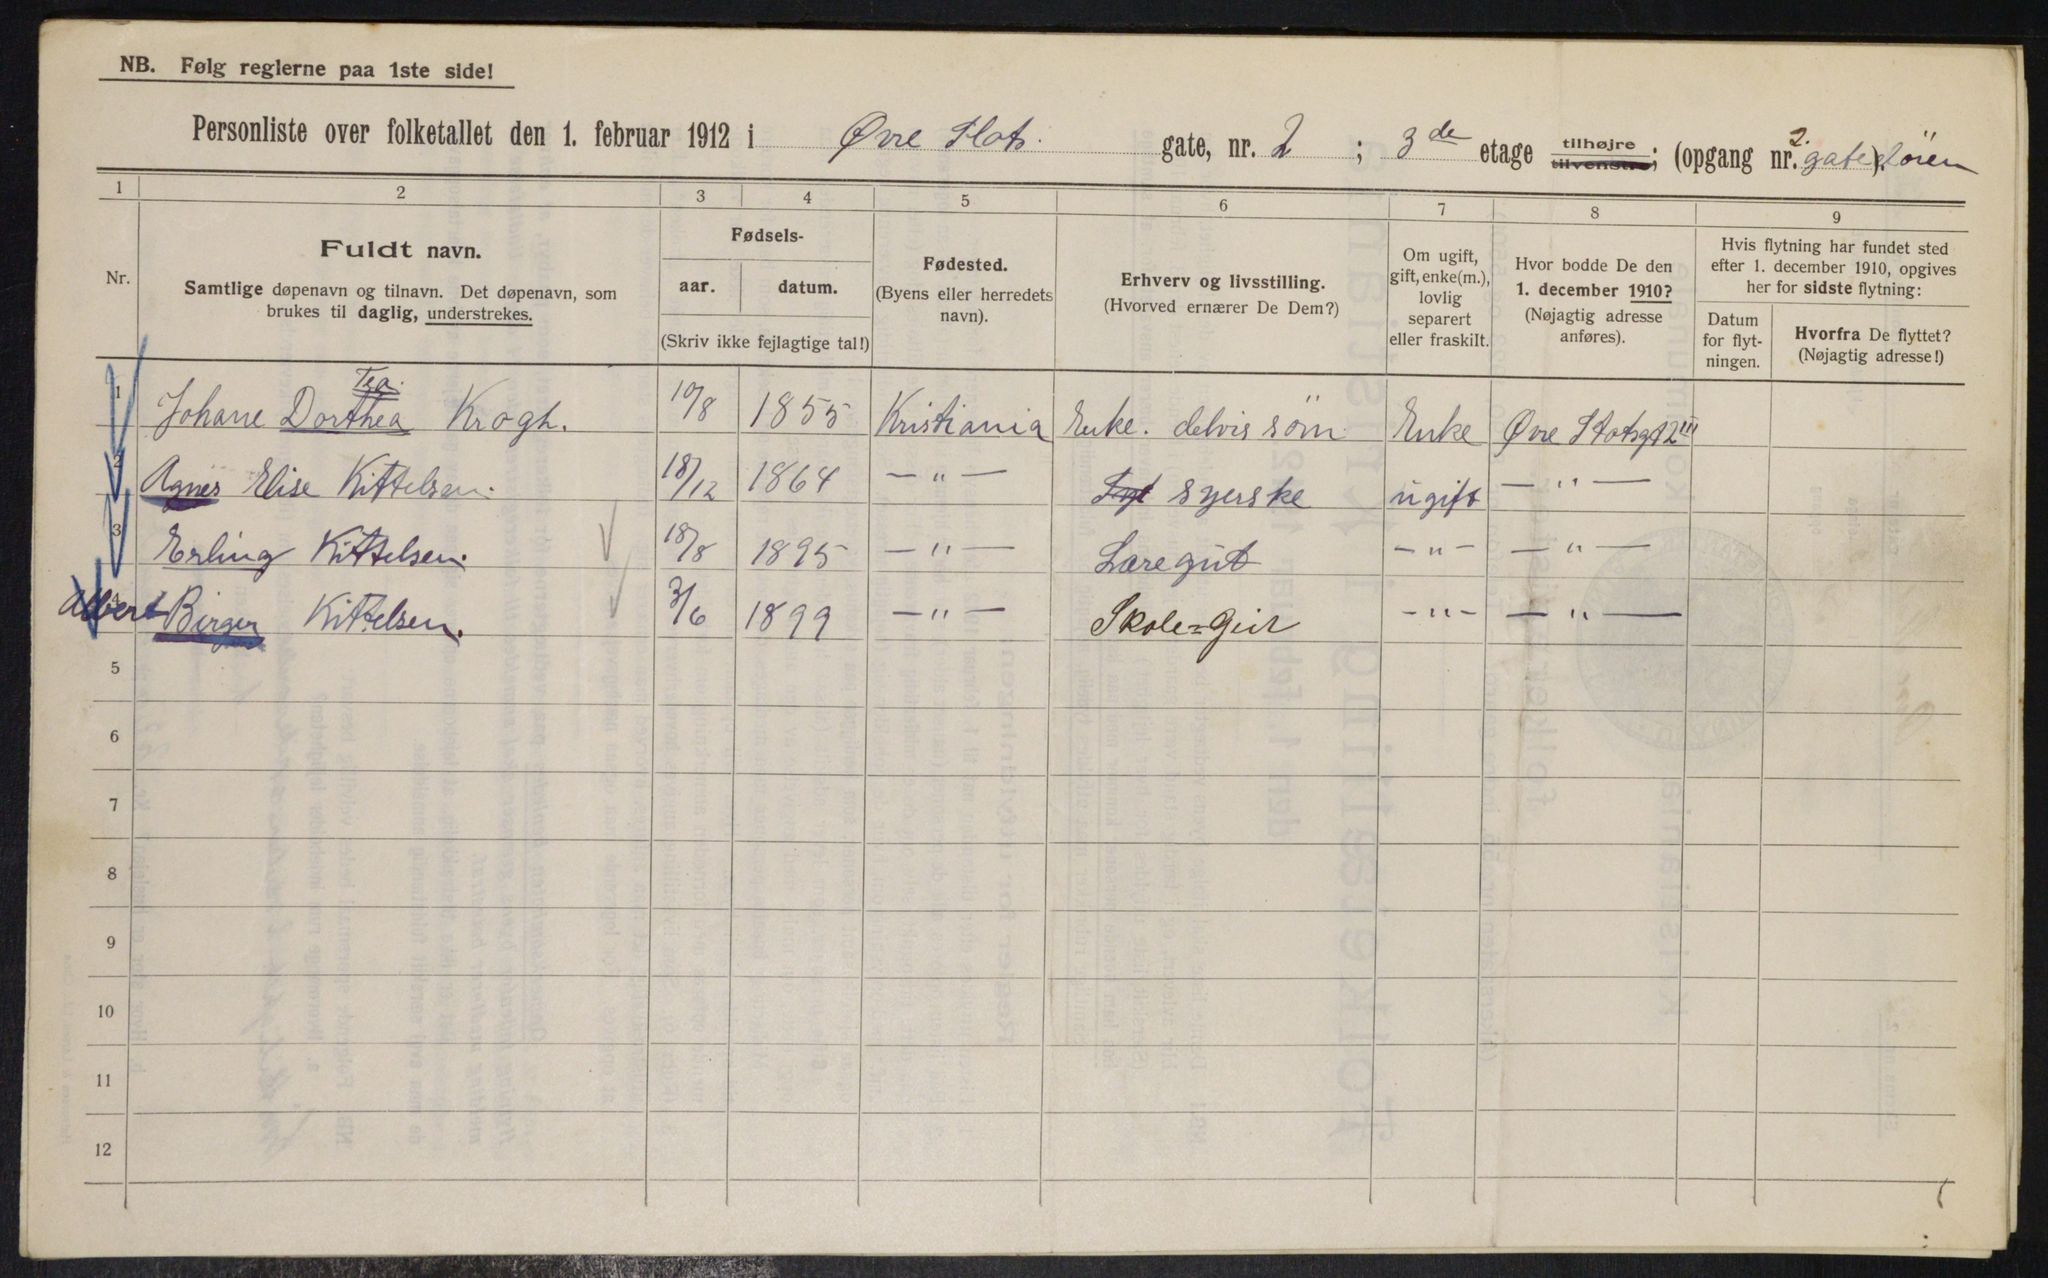 NB. Følg reglerne paa 1ste side!
Personliste over folketallet den 1. februar 1912 i Øvre Slots. gate, nr. 2 ; 3de etage tilhøjre tilvenstre; (opgang nr. 2. gatedören).
1 2 3 4 5 6 7 8 9
Nr. Fuldt navn. Samtlige døpenavn og tilnavn. Det døpenavn, som brukes til daglig, understrekes.
Fødsels- aar. datum. (Skriv ikke fejlagtige tal!)
Fødested. (Byens eller herredets navn).
Erhverv og livsstilling. (Hvorved ernærer De Dem?)
Om ugift, gift, enke(m.), lovlig separert eller fraskilt.
Hvor bodde De den 1. december 1910? (Nøjagtig adresse anføres).
Hvis flytning har fundet sted efter 1. december 1910, opgives her for sidste flytning:
Datum for flytningen. Hvorfra De flyttet? (Nøjagtig adresse!)
Tea.
1 Johane Dorthea Krogh. 10/8 1855 Kristiania Enke. delvis söm Enke Øvre Slotsgt 2 III
2 Agnes Elise Kittelsen. 18/12 1864 — " — syerske ugift — " —
3 Erling Kittelsen. 18/8 1895 — " — Læregut — " — — " —
4 Albert Birger Kittelsen. 3/6 1899 — " — Skole=Gut — " — — " —
5
6
7
8
9
10
11
12